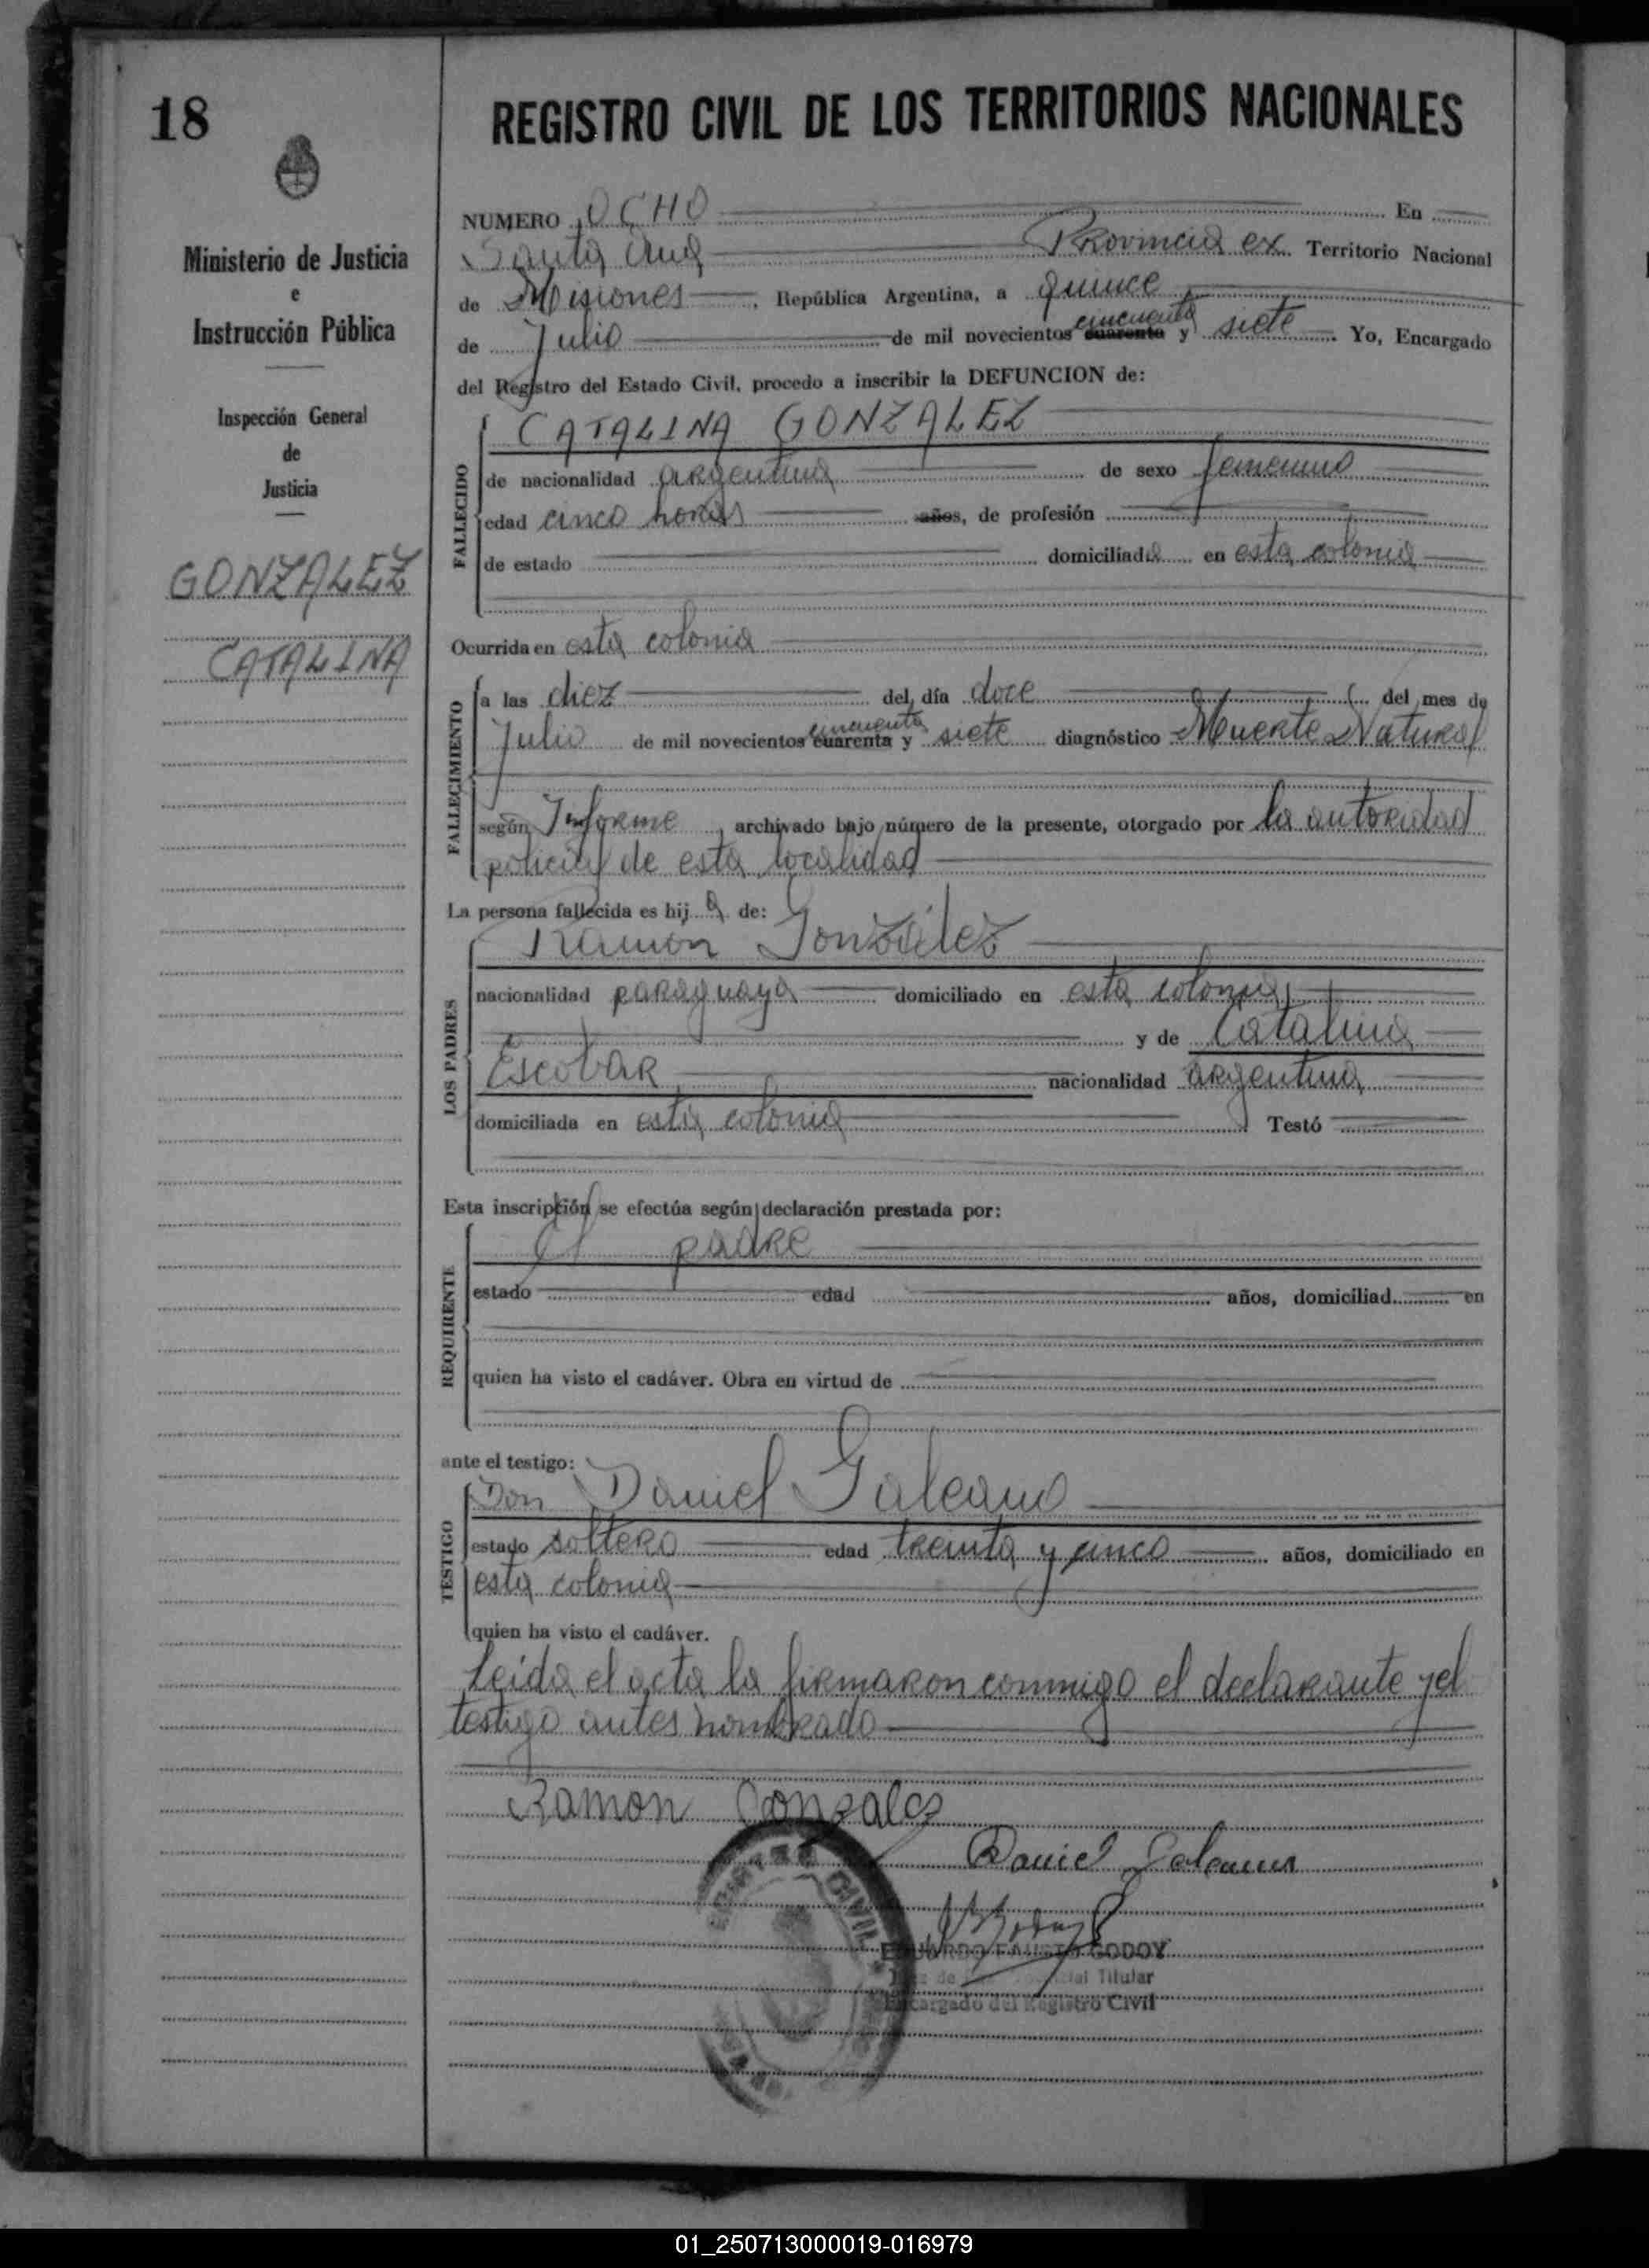 18
REGISTRO CIVIL DE LOS TERRITORIOS NACIONALES
Ministerio de Justicia
e
Instrucción Pública
Inspección General
de
Justicia
GONZALEZ
CATALINA
NUMERO OCHO En
Santa Ana Provincia ex Territorio Nacional
de Misiones, República Argentina, a quince
de Julio de mil novecientos cuarenta cincuenta y siete. Yo, Encargado
del Registro del Estado Civil, procedo a inscribir la DEFUNCION de:
FALLECIDO
CATALINA GONZALEZ
de nacionalidad argentina de sexo femenino
edad cinco horas años, de profesión
de estado domiciliada en esta colonia
Ocurrida en esta colonia
FALLECIMIENTO
a las diez del día doce del mes de
Julio de mil novecientos cuarenta cincuenta y siete diagnóstico Muerte Natural
según Informe, archivado bajo número de la presente, otorgado por la autoridad
policial de esta localidad
La persona fallecida es hija de:
LOS PADRES
Ramón González
nacionalidad paraguaya domiciliado en esta colonia,
y de Catalina
Escobar nacionalidad argentina
domiciliada en esta colonia Testó
Esta inscripción se efectúa según declaración prestada por:
REQUIRENTE
el padre
estado edad años, domiciliad en
quien ha visto el cadáver. Obra en virtud de
ante el testigo:
TESTIGO
Don Daniel Galeano
estado soltero edad treinta y cinco años, domiciliado en
esta colonia
quien ha visto el cadáver.
Leida el acta la firmaron conmigo el declarante y el
testigo antes nombrado
Ramon Gonzalez
Daniel Galeano
EDUARDO FAUSTO GODOY
Titular
Encargado del Registro Civil
CIVIL
01_250713000019-016979